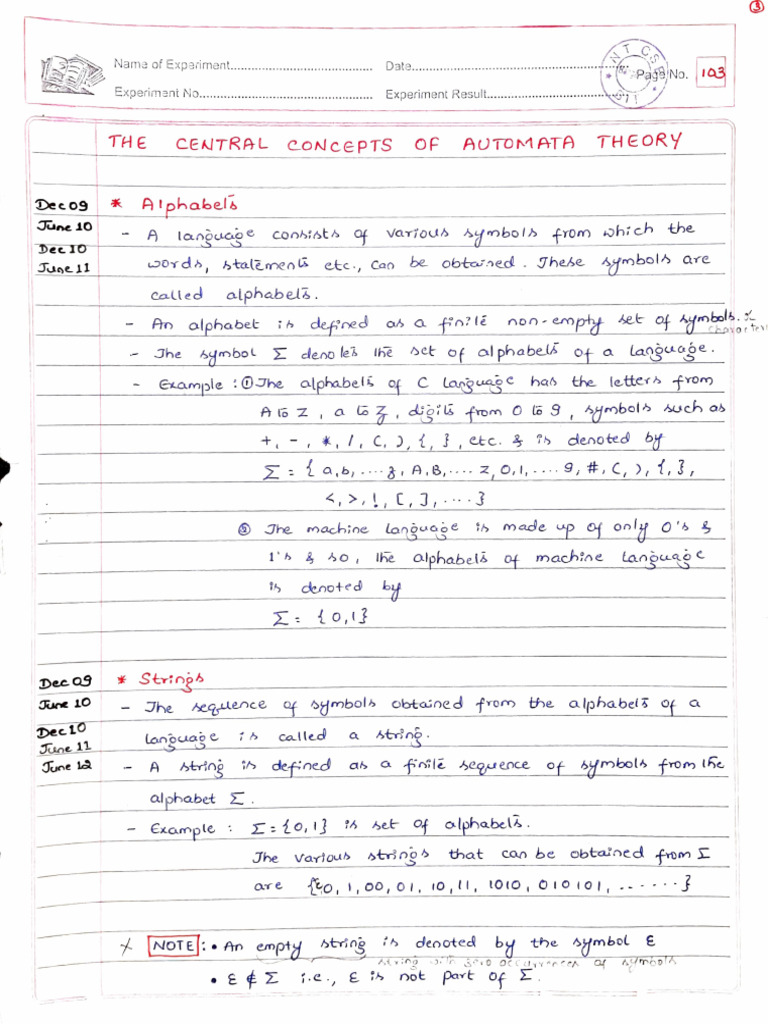 3
Name of Experiment........ Date........ Page No. 103
Experiment No........ Experiment Result........
NT CSE
THE CENTRAL CONCEPTS OF AUTOMATA THEORY
Dec 09 * Alphabets
June 10 - A language consists of various symbols from which the
Dec 10 words, statements etc., can be obtained. These symbols are
June 11
called alphabets.
- An alphabet is defined as a finite non-empty set of symbols.
character
- The symbol Σ denotes the set of alphabets of a language.
- Example : ① The alphabets of C language has the letters from
A to Z, a to z, digits from 0 to 9, symbols such as
+, -, *, /, (, ), {, }, etc. & is denoted by
Σ = { a,b, ....z, A,B,.... Z, 0,1, ....9, #, (, ), {, },
<, >, !, [, ], ....}
② The machine language is made up of only 0's &
1's & so, the alphabets of machine language
is denoted by
Σ = {0,1}
Dec 09 * Strings
June 10 - The sequence of symbols obtained from the alphabets of a
Dec 10
June 11 language is called a string.
June 12 - A string is defined as a finite sequence of symbols from the
alphabet Σ.
- Example : Σ = {0,1} is set of alphabets.
The various strings that can be obtained from Σ
are {ε, 0, 1, 00, 01, 10, 11, 1010, 010101, .......}
NOTE : • An empty string is denoted by the symbol ε
string with zero occurrences of symbols
• ε ∉ Σ i.e., ε is not part of Σ.